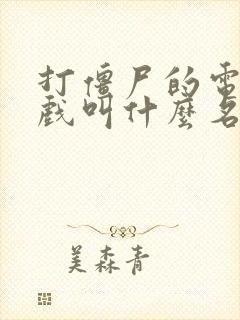 打僵尸的電
戲叫什麼名
美森青